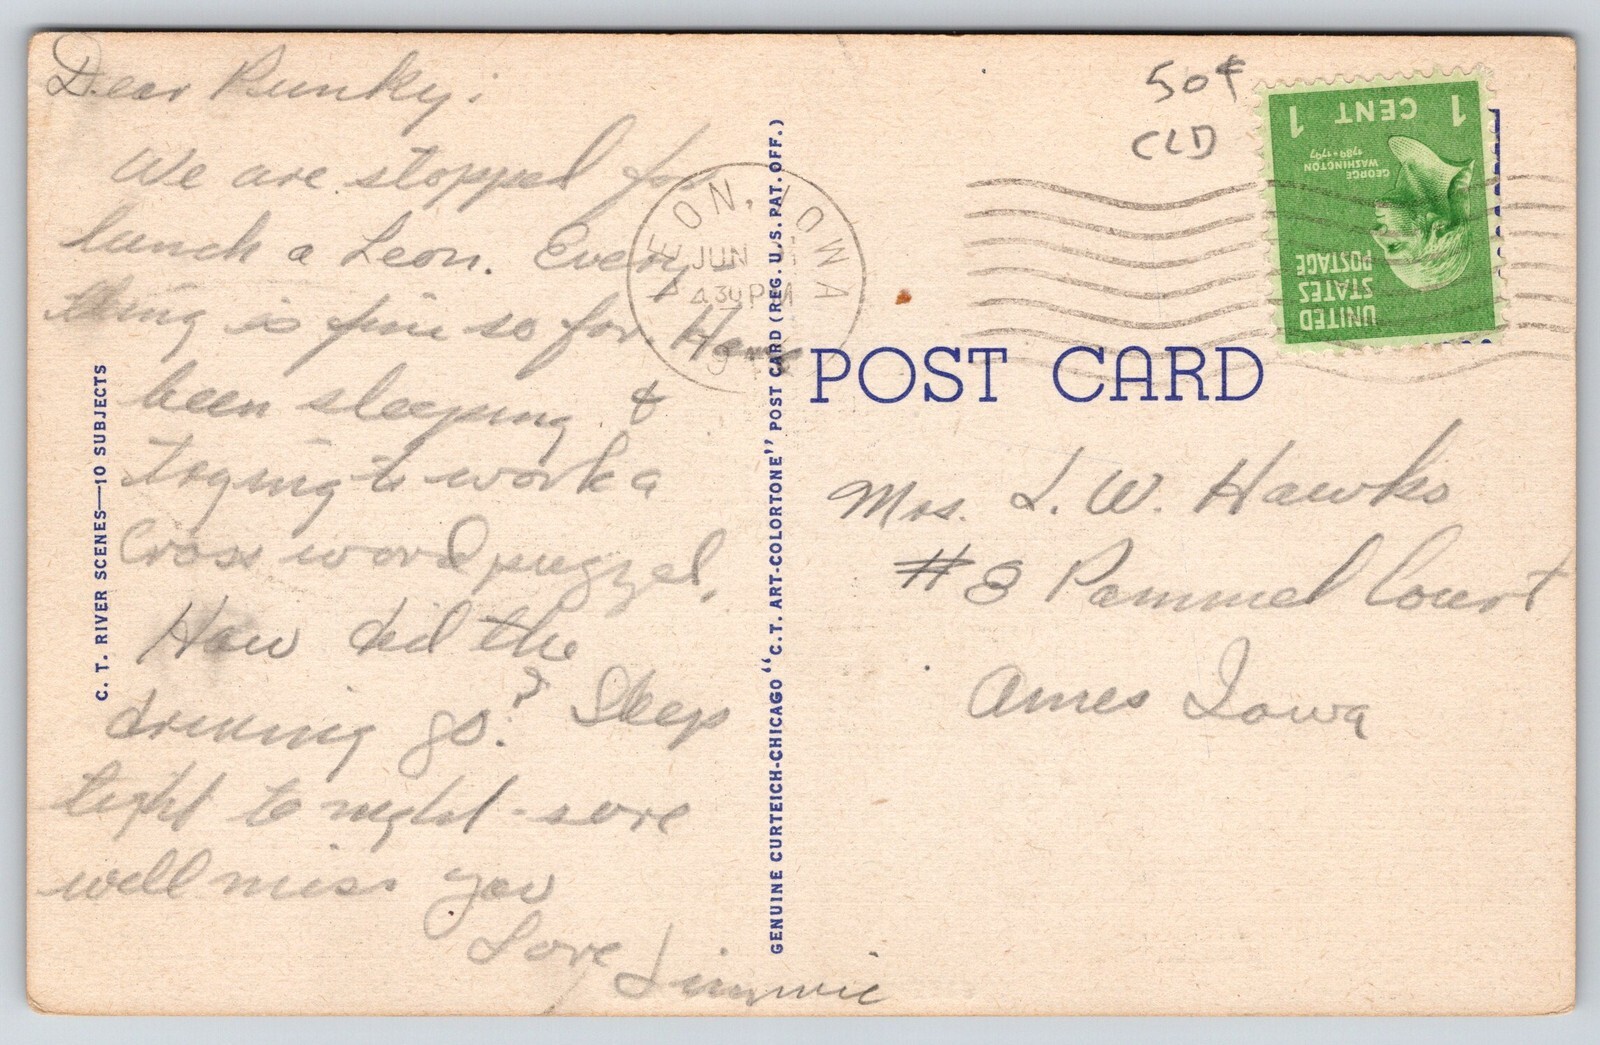 Dear Punky:
We are stopped for
lunch a Leon. Every
thing is fine so far. Have
been sleeping &
trying to work a
Cross word puzzel.
How did the
drinning go? Sleep
tight to night - sure
will miss you
Love Jimmie
C. T. RIVER SCENES—10 SUBJECTS
GENUINE CURTEICH-CHICAGO "C.T. ART-COLORTONE" POST CARD (REG. U.S. PAT. OFF.)
LEON, IOWA
JUN
4 30 PM
50¢
CLD
UNITED
STATES
POSTAGE
GEORGE
WASHINGTON
1789·1797
1 CENT 1
POST CARD
Mrs. J. W. Hawks
#8 Pammel Court
Ames Iowa